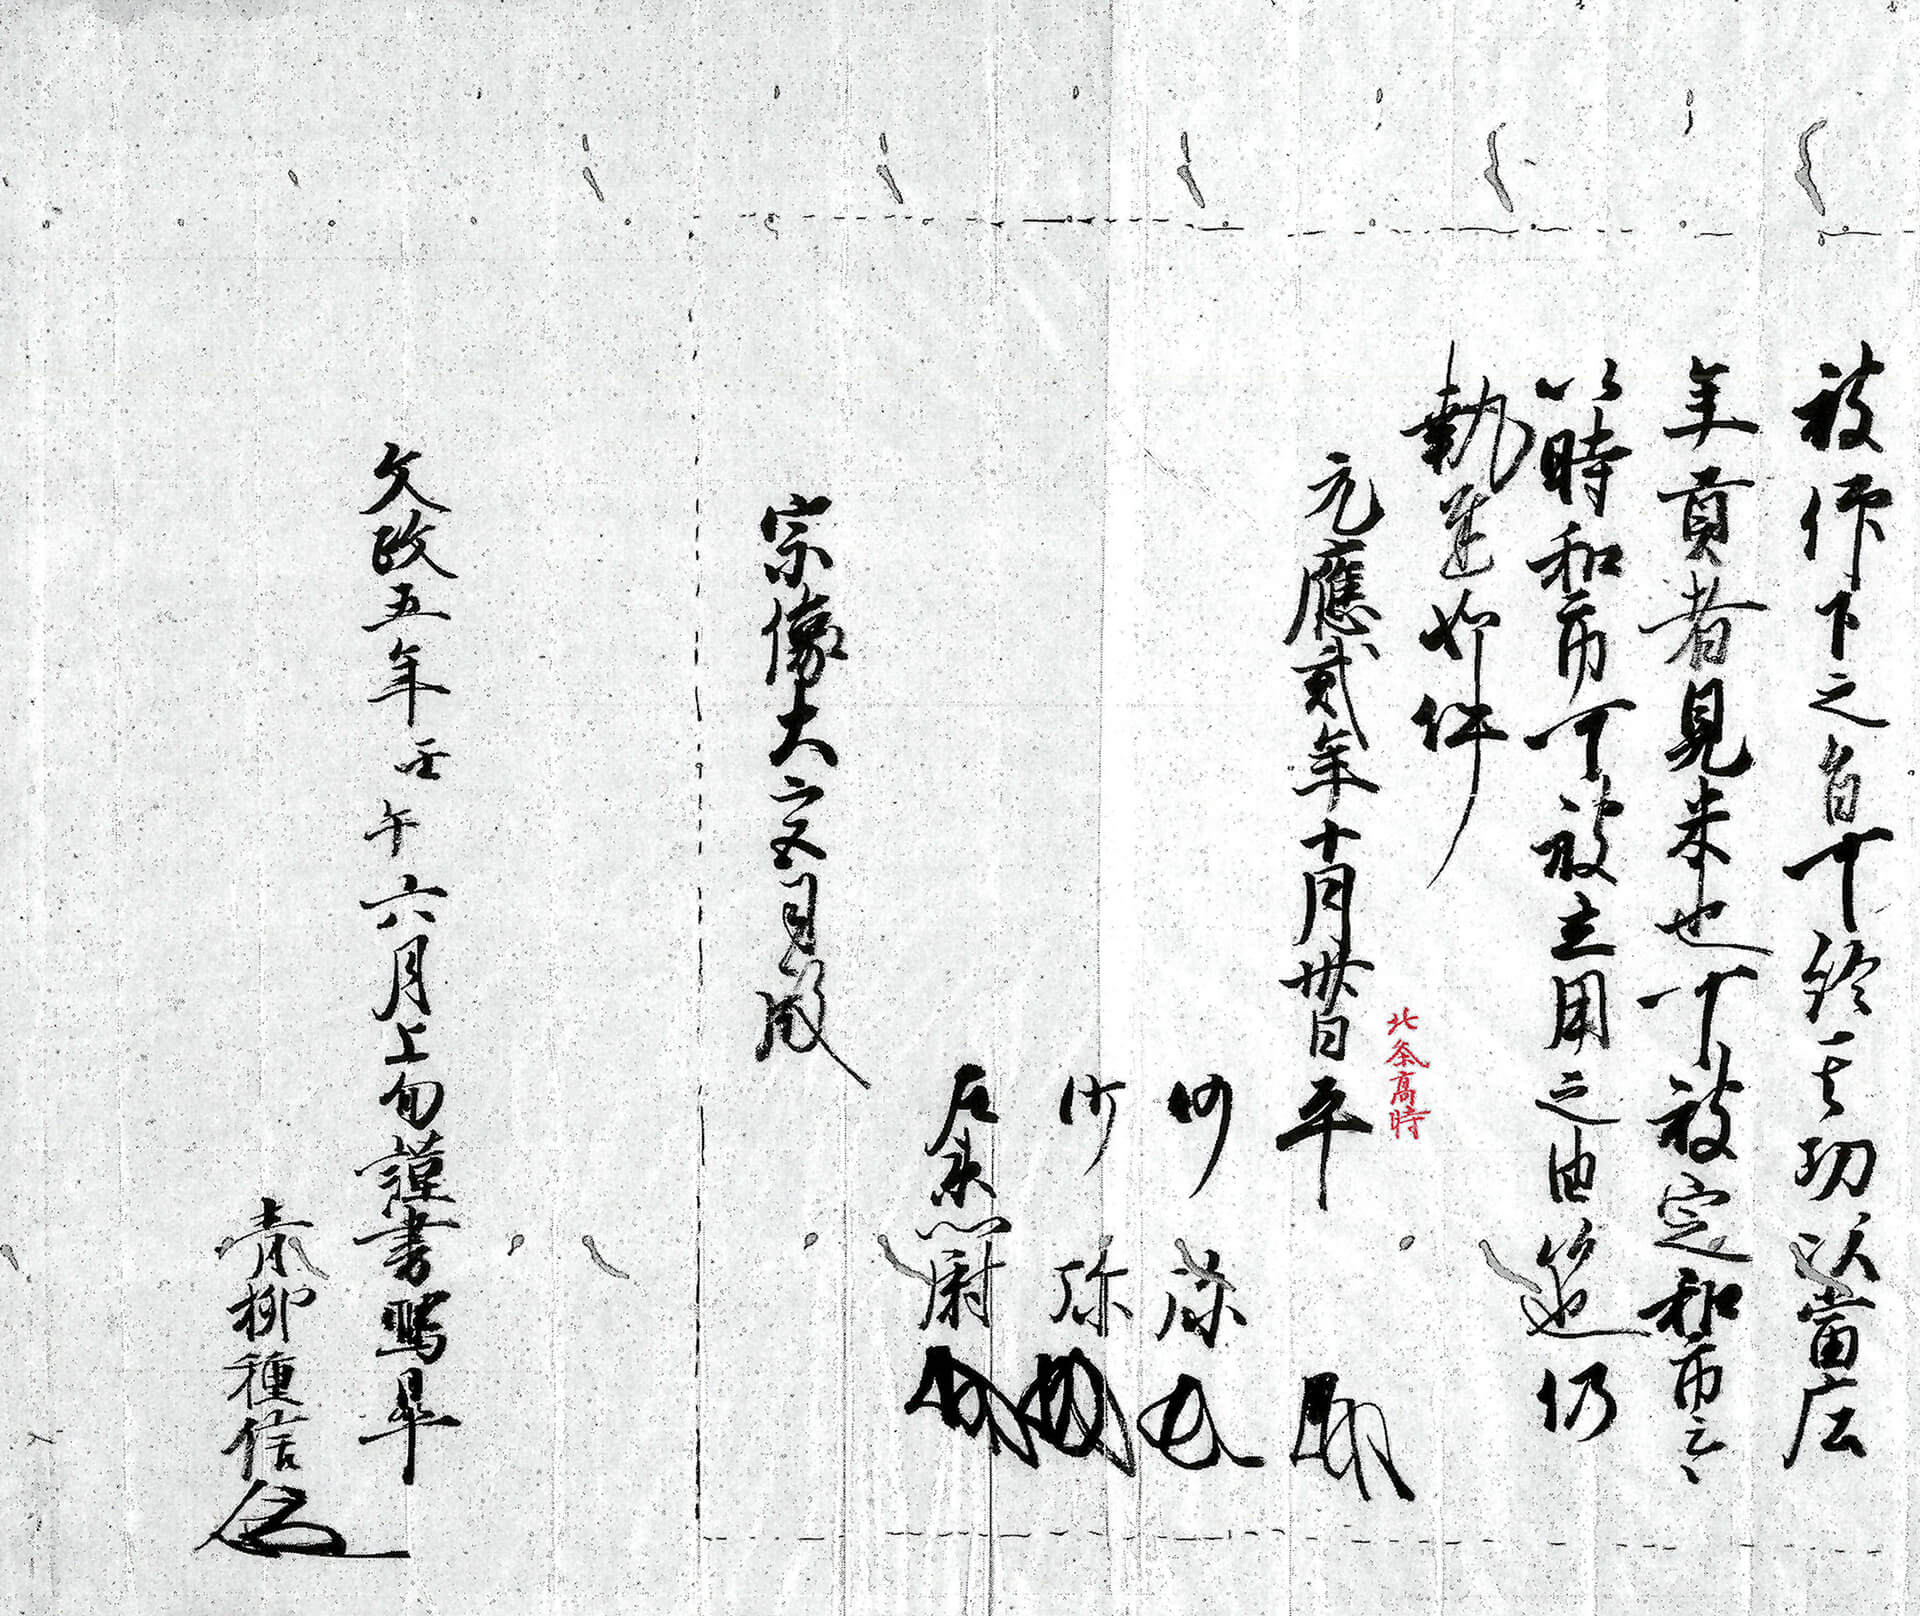 被仰下之旨可終其功以當庄
年貢者見米也可被定和市云々
以時和市可被立用之由 仍
執達如件
北条高時
元應貳年十月卅日 平
沙弥
沙弥
左兵衛尉
宗像大宮司殿
文政五年壬午六月上旬謹書寫畢
青柳種信